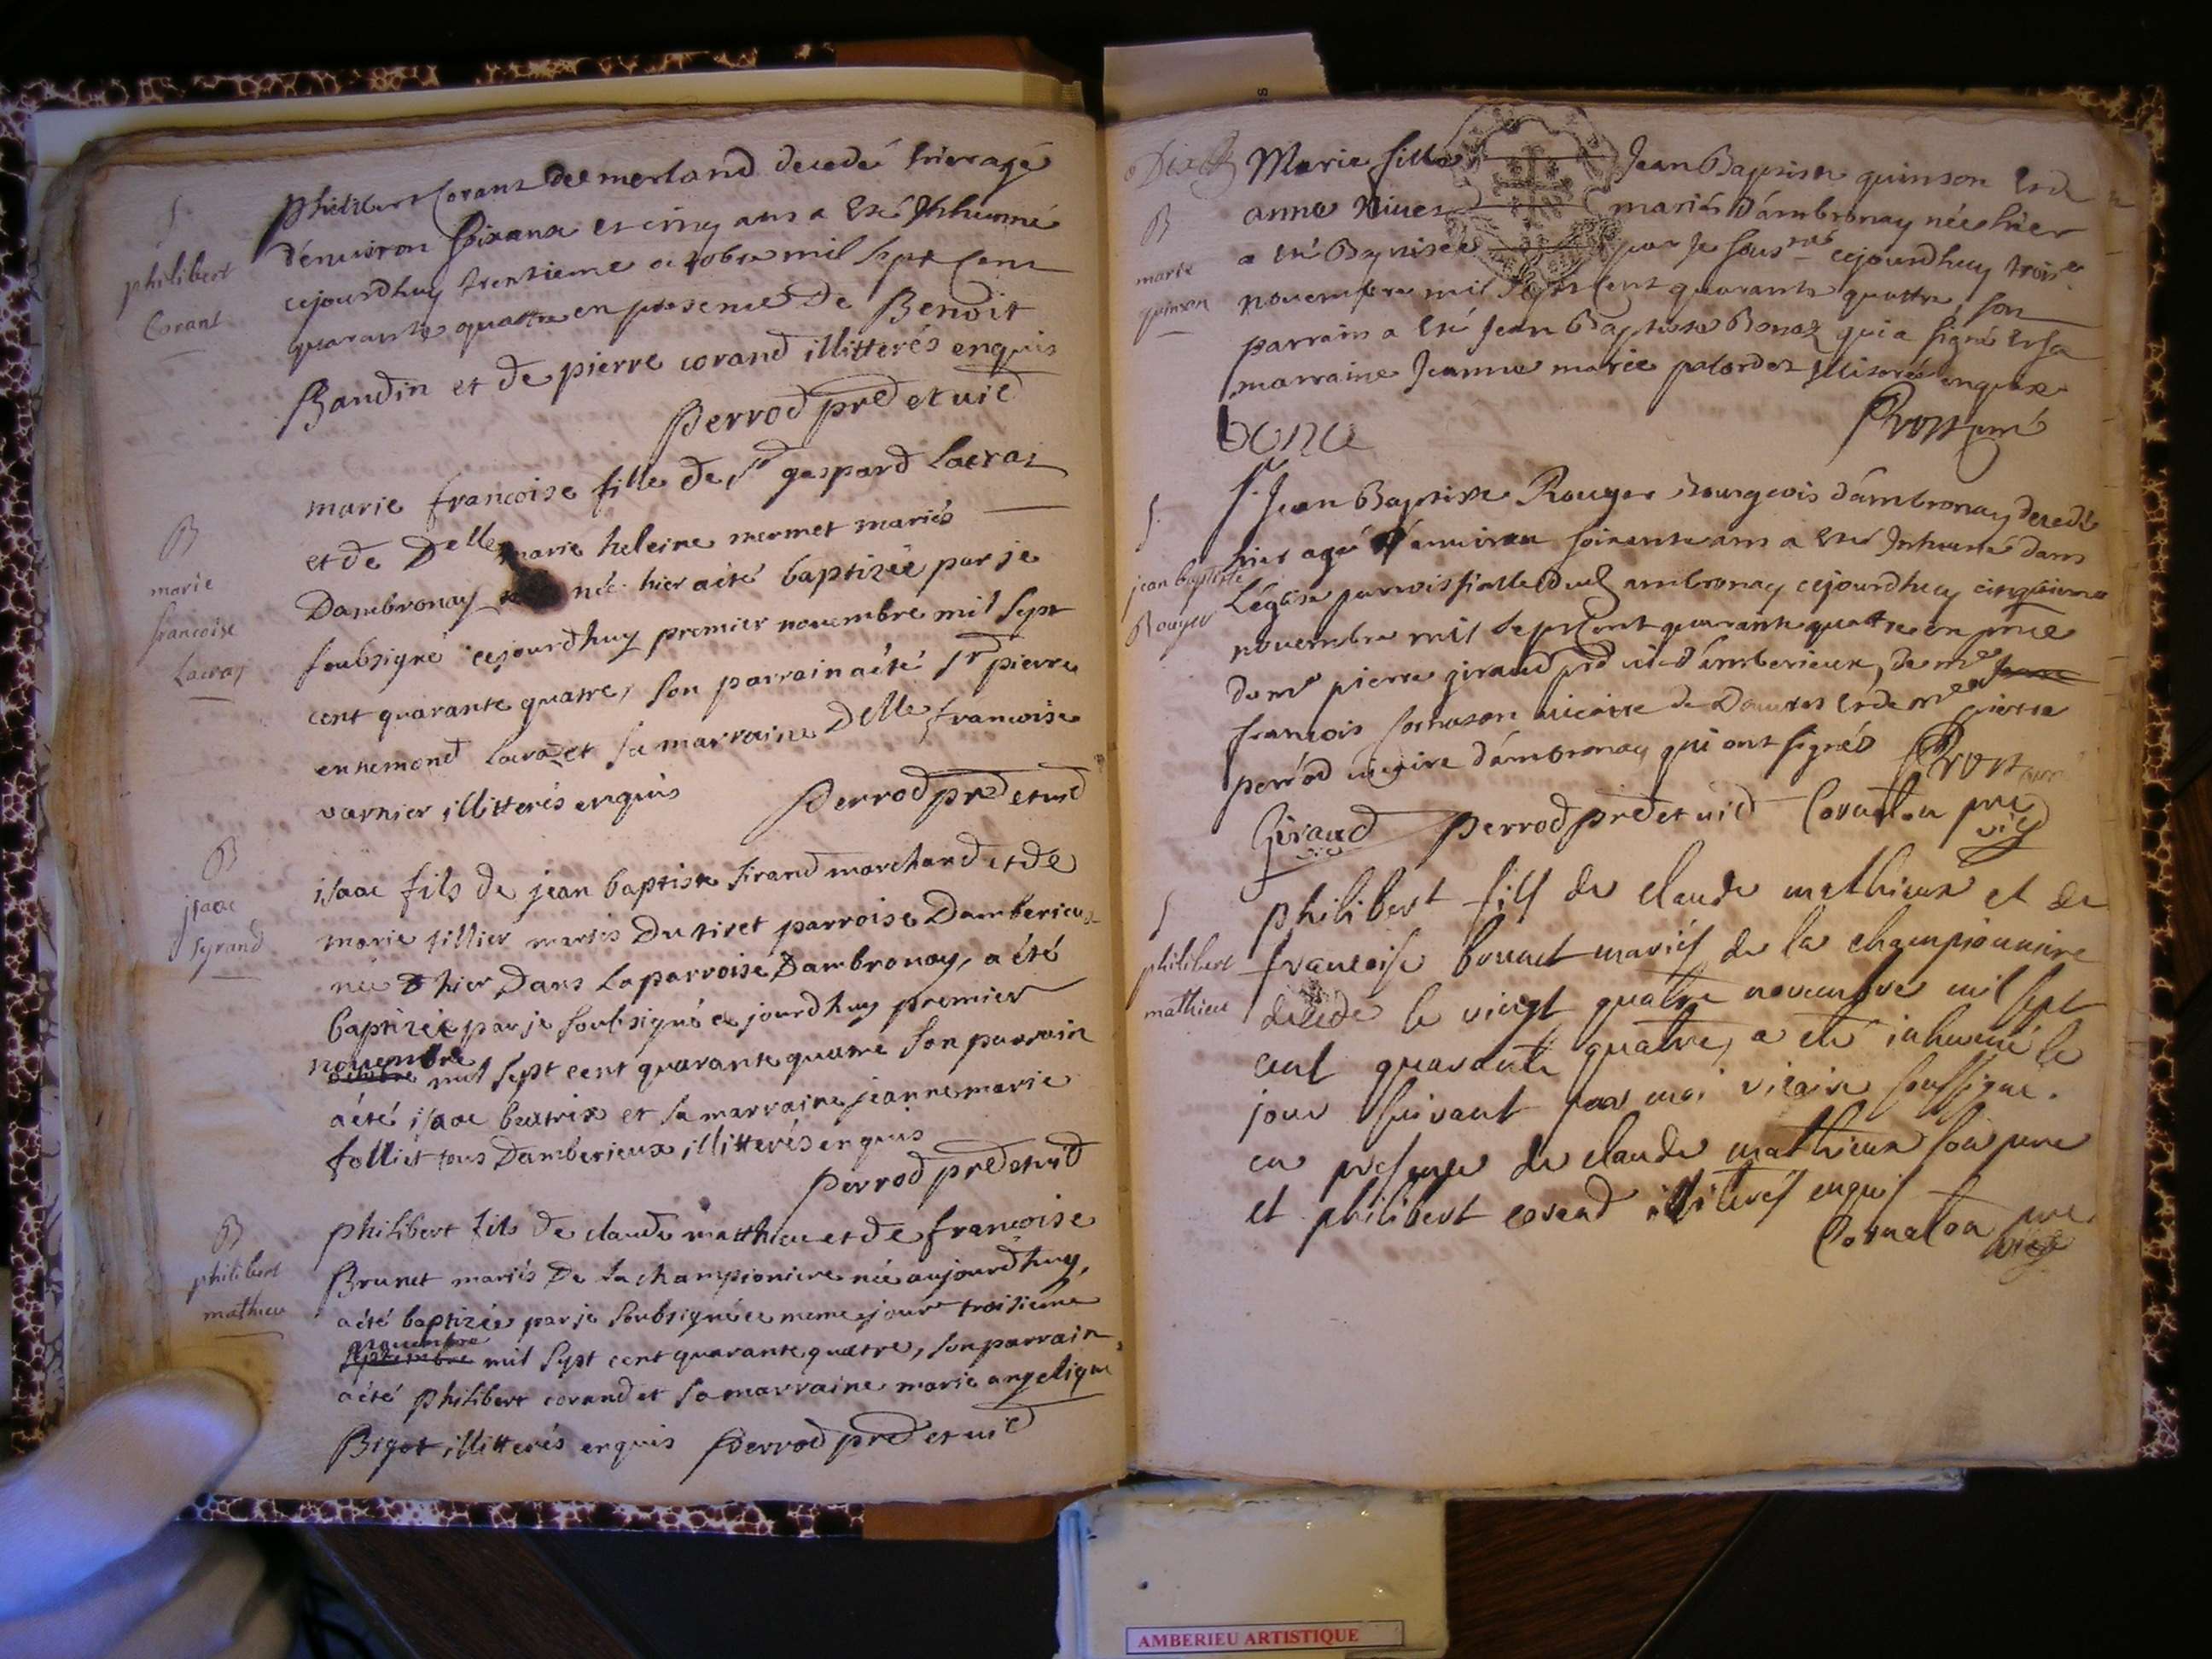 S.
philibert
Corant
philibert Corant de merland decedé hier agé
d'environ soixante et cinq ans a esté Inhumé
cejourdhuy trentieme octobre mil sept cent
quarante quattre en presence de Benoit
Baudin et de pierre corand illitterés enquis
Perrod pred et vicd
B
marie
francoise
Lacraz
marie francoise fille de sr gaspard Lacraz
et de Delle marie heleine mermet mariés
Dambronay née hier a été baptizée par je
soubsigné cejourdhuy premier novembre mil sept
cent quarante quatre, son parrain a été sr pierre
ennemond lacraz et sa marraine Delle francoise
varnier illitterés enquis Perrod pred et vicd
B
isaac
syrand
isaac fils de jean baptiste sirand marchand et de
marie tillier mariés Du tiret parroise Damberieux
née hier Dans La parroise Dambronay, a été
baptizée par je soubsigné ce jourdhuy premier
novembre
octobre mil sept cent quarante quatre son parrain
a été isaac beatrix et sa marraine jeanne marie
folliet tous Damberieux illitterés enquis
Perrod pred et vicd
B
philibert
mathieu
philibert fils de claude matthieu et de francoise
Brunet mariés De la championiere née aujourdhuy,
a été baptizée par je soubsigné ce meme jour troisieme
novembre
septembre mil sept cent quarante quatre, son parrain
a été philibert corand et sa marraine marie angelique
Bigot illitterés enquis Perrod pred et vicd
B
marie
quinson
Marie fille Jean Baptiste quinson et de
anne mariés d'ambronay née hier
a été Baptisée par je souss.né cejourdhuy trois.e
novembre mil sept cent quarante quattre, son
parrain a esté Jean Baptiste Bonaz qui a signé et sa
marraine Jeanne marie enquise
bona
Prost curé
S.
jean baptiste
Rouyer
Sr. Jean Baptiste Rouyer bourgeois d'ambronay decedé
hier agé d'environ soixante ans a esté Inhumé dans
L'église parroissialle dud ambronay cejourdhuy cinquieme
novembre mil sept cent quarante quattre en pnce
de mre pierre giraud prd vic d'amberieux, de mre
francois cornaton vicaire de Douvres et de mre pierre
perrod vicaire d'ambronay qui ont signés Prost curé
Giraud vic Perrod pred et vicd Cornaton pre
vic
S
philibert
mathieu
philibert fils de claude mathieux et de
francoise brunet mariés de la championniere
decedé le vingt quatre novembre mil sept
cent quarante quatre, a eté inhumé le
jour suivant par moi vicaire soussigné.
en presence de claude mathieux son pere
et philibert corand illiterés enquis
Cornaton pre
vic
AMBERIEU ARTISTIQUE